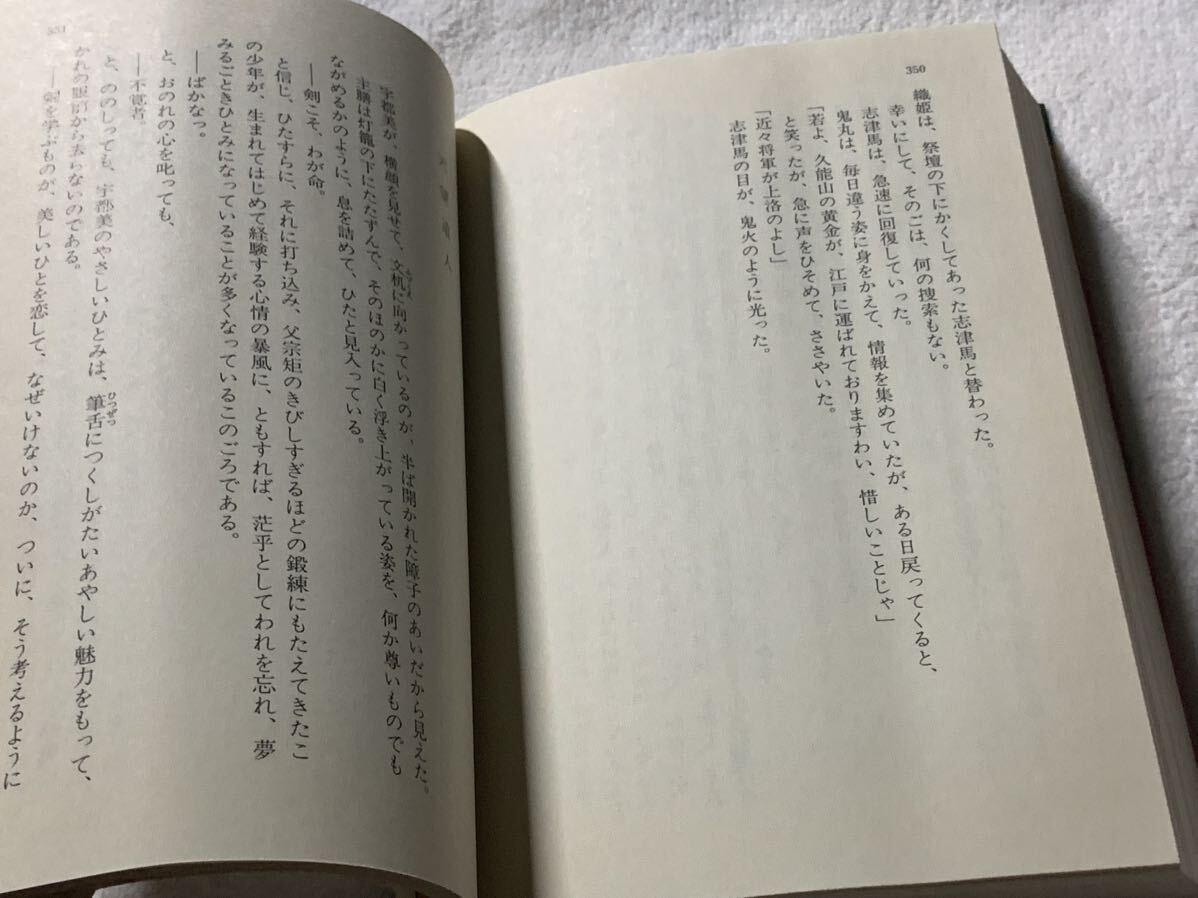 350
織姫は、祭壇の下にかくしてあった志津馬と替わった。
幸いにして、そのごは、何の捜索もない。
志津馬は、急速に回復していった。
鬼丸は、毎日違う姿に身をかえて、情報を集めていたが、ある日戻ってくると、
「若よ、久能山の黄金が、江戸に運ばれておりますわい、惜しいことじゃ」
と笑ったが、急に声をひそめて、ささやいた。
「近々将軍が上洛のよし」
志津馬の目が、鬼火のように光った。
351
人
宇都美が、横顔を見せて、文机に向かっているのが、半ば開かれた障子のあいだから見えた。
主膳は灯籠の下にたたずんで、そのほのかに白く浮き上がっている姿を、何か尊いものでも
ながめるかのように、息を詰めて、ひたと見入っている。
――剣こそ、わが命。
と信じ、ひたすらに、それに打ち込み、父宗矩のきびしすぎるほどの鍛練にもたえてきたこ
の少年が、生まれてはじめて経験する心情の暴風に、ともすれば、茫乎としてわれを忘れ、夢
みるごときひとみになっていることが多くなっているこのごろである。
――ばかなっ。
と、おのれの心を叱っても、
――不覚者。
と、ののしっても、宇都美のやさしいひとみは、筆舌につくしがたいあやしい魅力をもって、
ひつぜつ
かれの眼前から去らないのである。
――剣を学ぶものが、美しいひとを恋して、なぜいけないのか、ついに、そう考えるように